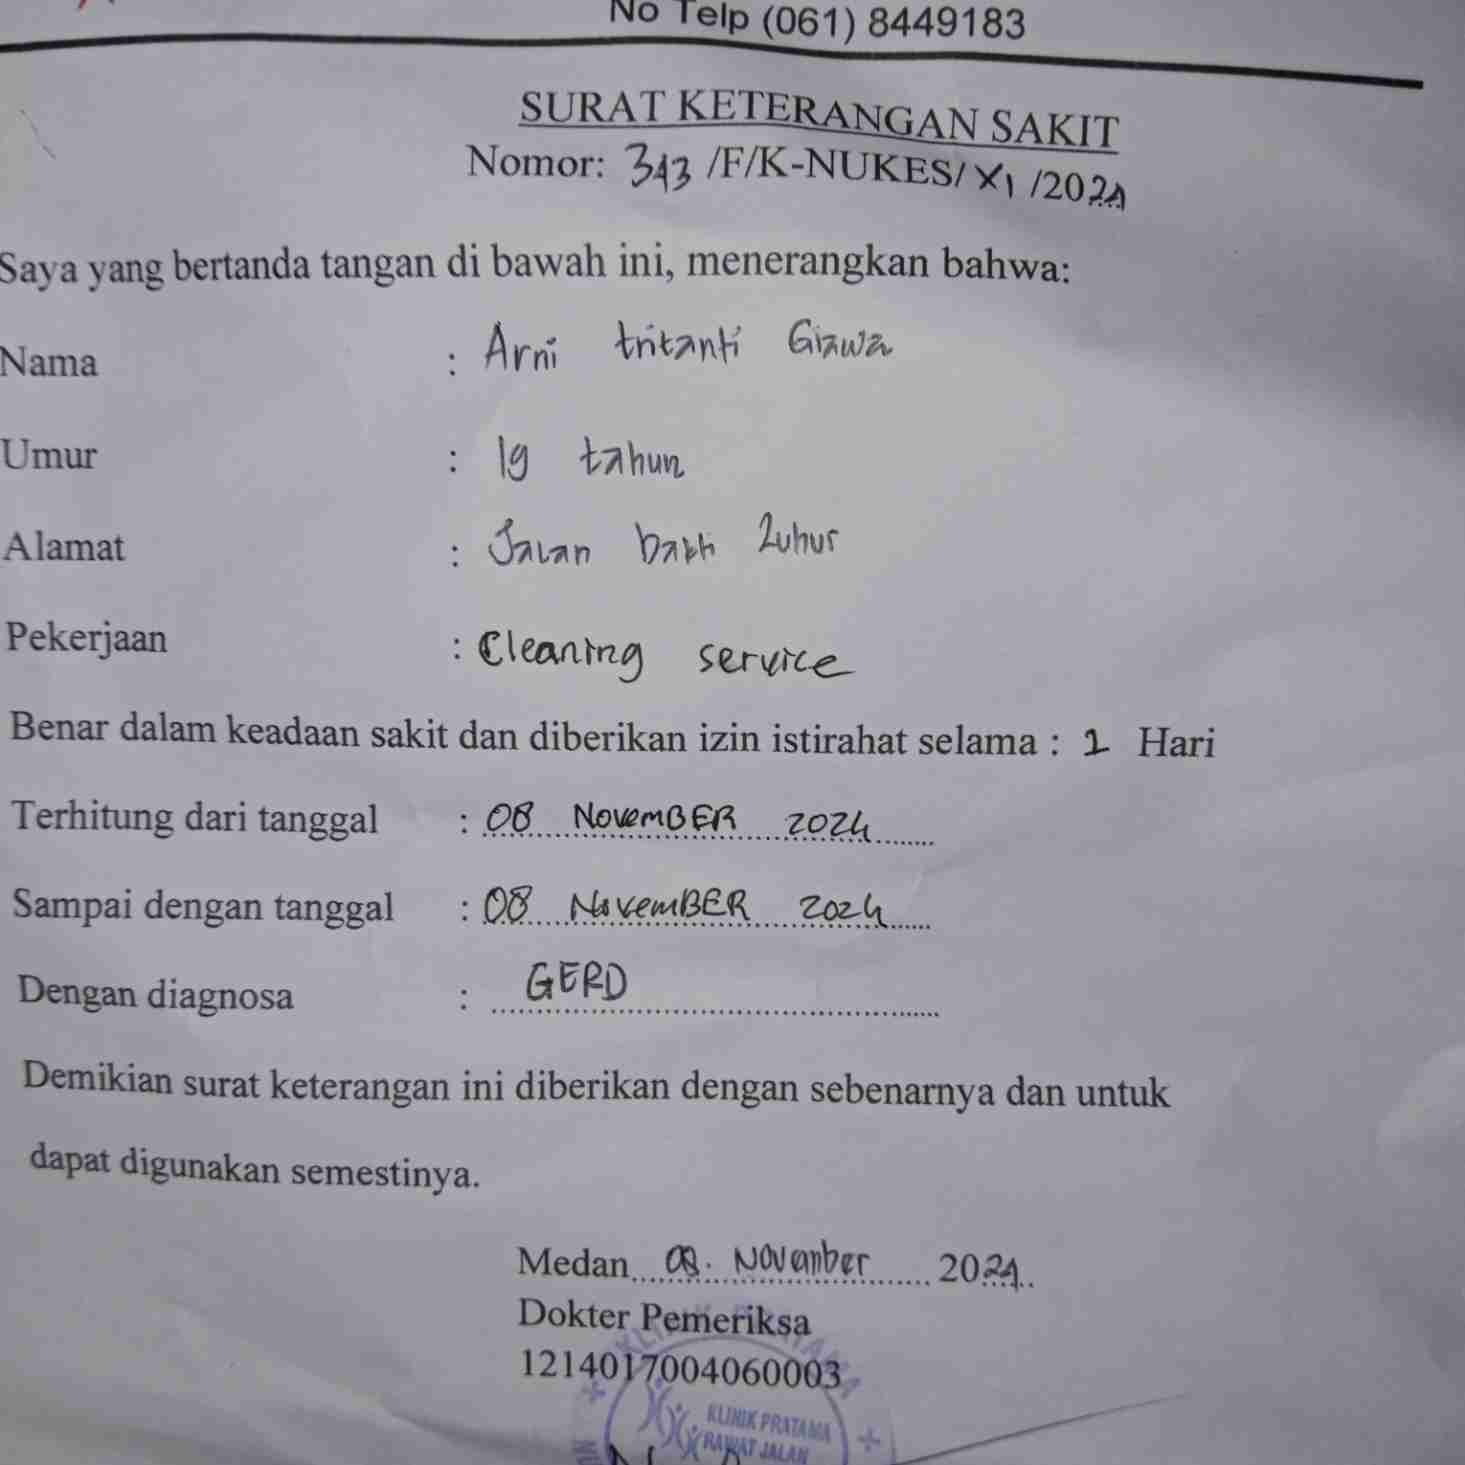 No Telp (061) 8449183
SURAT KETERANGAN SAKIT
Nomor: 313 /F/K-NUKES/ XI /2024
Saya yang bertanda tangan di bawah ini, menerangkan bahwa:
Nama : Arni tritanti Giawa
Umur : 19 tahun
Alamat : Jalan bakti Luhur
Pekerjaan : Cleaning service
Benar dalam keadaan sakit dan diberikan izin istirahat selama : 1 Hari
Terhitung dari tanggal : 08 NovemBER 2024
Sampai dengan tanggal : 08 NovemBER 2024
Dengan diagnosa : GERD
Demikian surat keterangan ini diberikan dengan sebenarnya dan untuk
dapat digunakan semestinya.
Medan 08. November 2024
Dokter Pemeriksa
1214017004060003
KLINIK PRATAMA
KLINIK PRATAMA
RAWAT JALAN